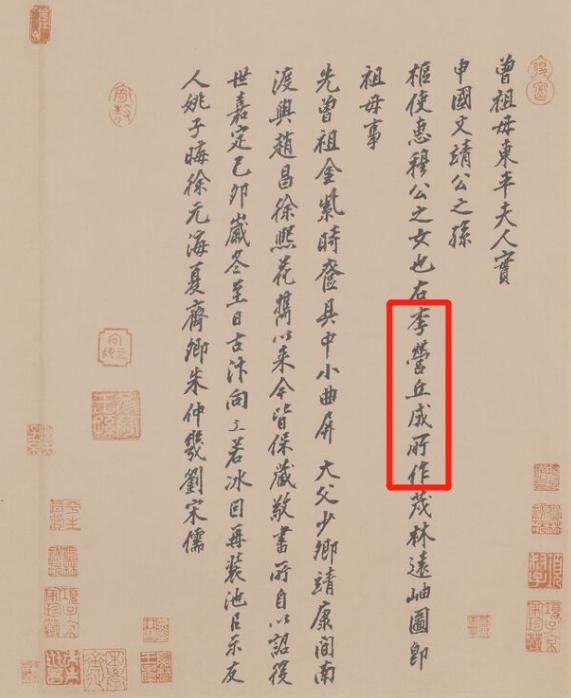 曾祖母東平夫人實
申國文靖公之孫
樞使惠穆公之女也右李營丘成所作茂林遠岫圖即
祖母事
先曾祖金紫時奩具中小曲屏 大父少卿靖康間南
渡與趙昌徐熙花攜以來今皆保藏敬書所自以詔後
世嘉定己卯歲冬至日古汴向水若冰因再裝池㠯示友
人姚子晦徐元海夏齊卿朱仲幾劉宋儒